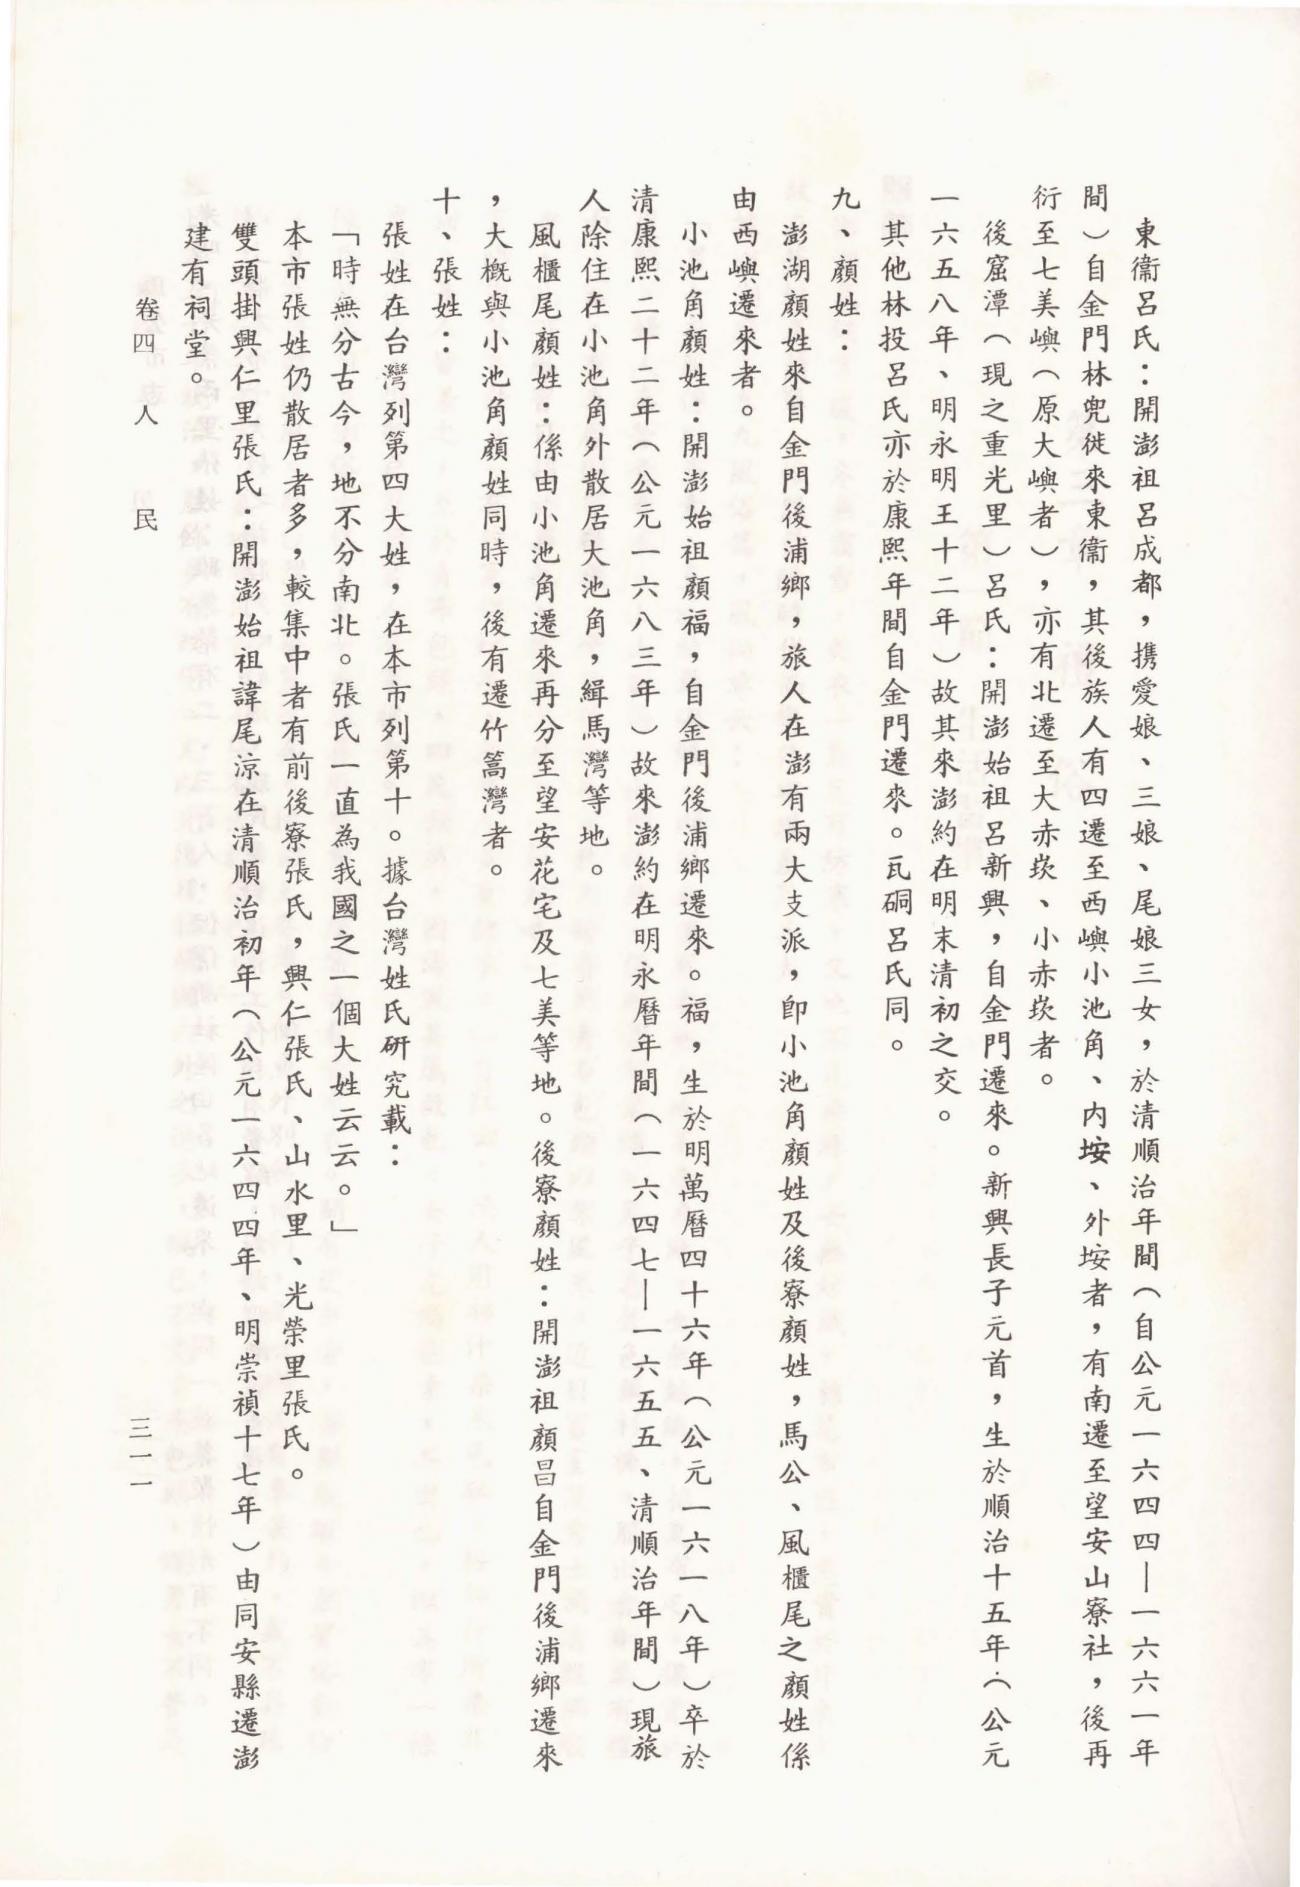 東衞呂氏：開澎祖呂成都，携愛娘、三娘、尾娘三女，於清順治年間（自公元一六四四—一六六一年
間）自金門林兜徙來東衞，其後族人有四遷至西嶼小池角、內垵、外垵者，有南遷至望安山寮社，後再
衍至七美嶼（原大嶼者），亦有北遷至大赤崁、小赤崁者。
後窟潭（現之重光里）呂氏：開澎始祖呂新興，自金門遷來。新興長子元首，生於順治十五年（公元
一六五八年、明永明王十二年）故其來澎約在明末清初之交。
其他林投呂氏亦於康熙年間自金門遷來。瓦硐呂氏同。
九、顏姓：
澎湖顏姓來自金門後浦鄉，旅人在澎有兩大支派，卽小池角顏姓及後寮顏姓，馬公、風櫃尾之顏姓係
由西嶼遷來者。
小池角顏姓：開澎始祖顏福，自金門後浦鄉遷來。福，生於明萬曆四十六年（公元一六一八年）卒於
清康熙二十二年（公元一六八三年）故來澎約在明永曆年間（一六四七—一六五五、清順治年間）現旅
人除住在小池角外散居大池角，緝馬灣等地。
風櫃尾顏姓：係由小池角遷來再分至望安花宅及七美等地。後寮顏姓：開澎祖顏昌自金門後浦鄉遷來
，大概與小池角顏姓同時，後有遷竹篙灣者。
十、張姓：
張姓在台灣列第四大姓，在本市列第十。據台灣姓氏研究載：
「時無分古今，地不分南北。張氏一直為我國之一個大姓云云。」
本市張姓仍散居者多，較集中者有前後寮張氏，興仁張氏、山水里、光榮里張氏。
雙頭掛興仁里張氏：開澎始祖諱尾涼在清順治初年（公元一六四四年、明崇禎十七年）由同安縣遷澎
建有祠堂。
卷四　人　民
三一一